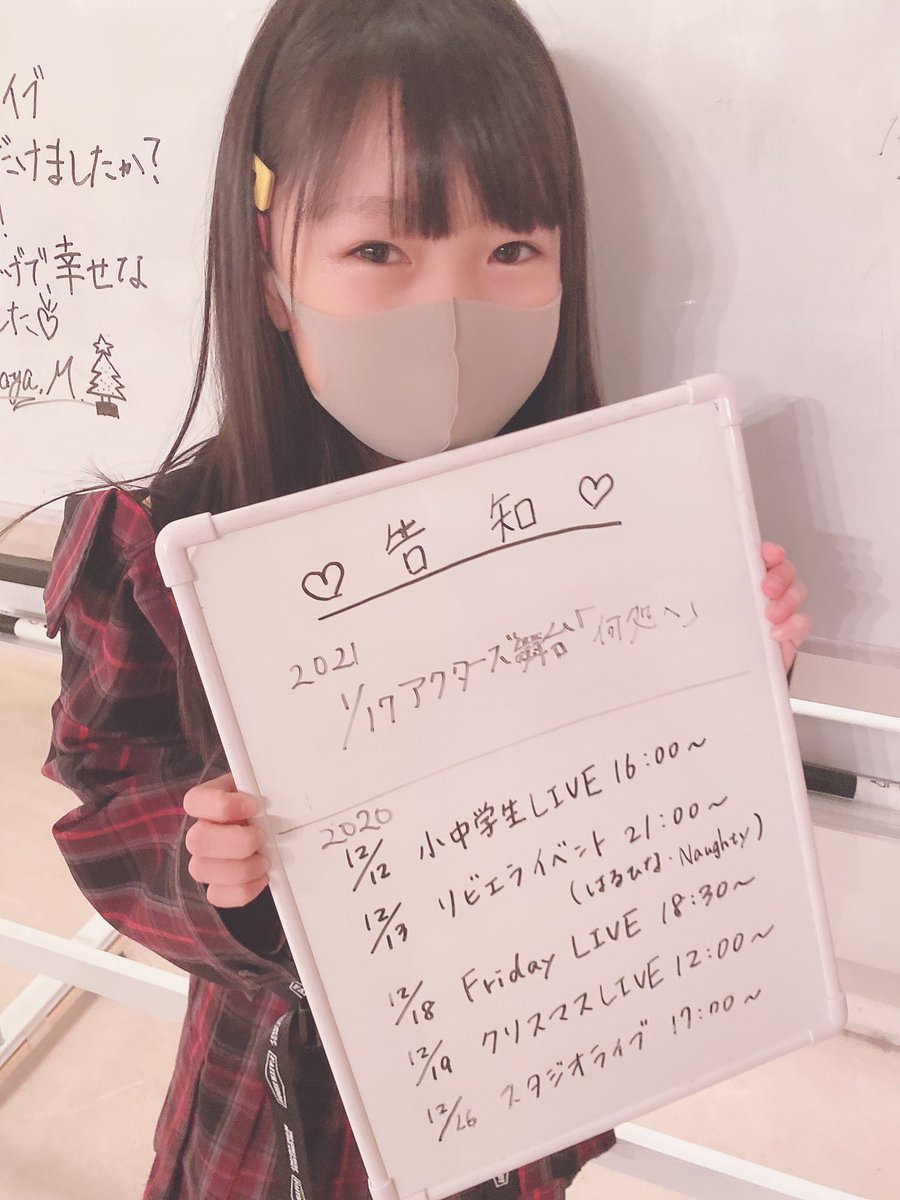 イブ
だけましたか?
!
げで、幸せな
した♡
aya.M.
♡ 告知 ♡
2021
1/17 アクターズ舞台「何処へ」
2020
12/12 小中学生LIVE 16:00~
12/13 リビエライベント 21:00~
(はるひな・Naughty)
12/18 Friday LIVE 18:30~
12/19 クリスマスLIVE 12:00~
12/26 スタジオライブ 17:00~